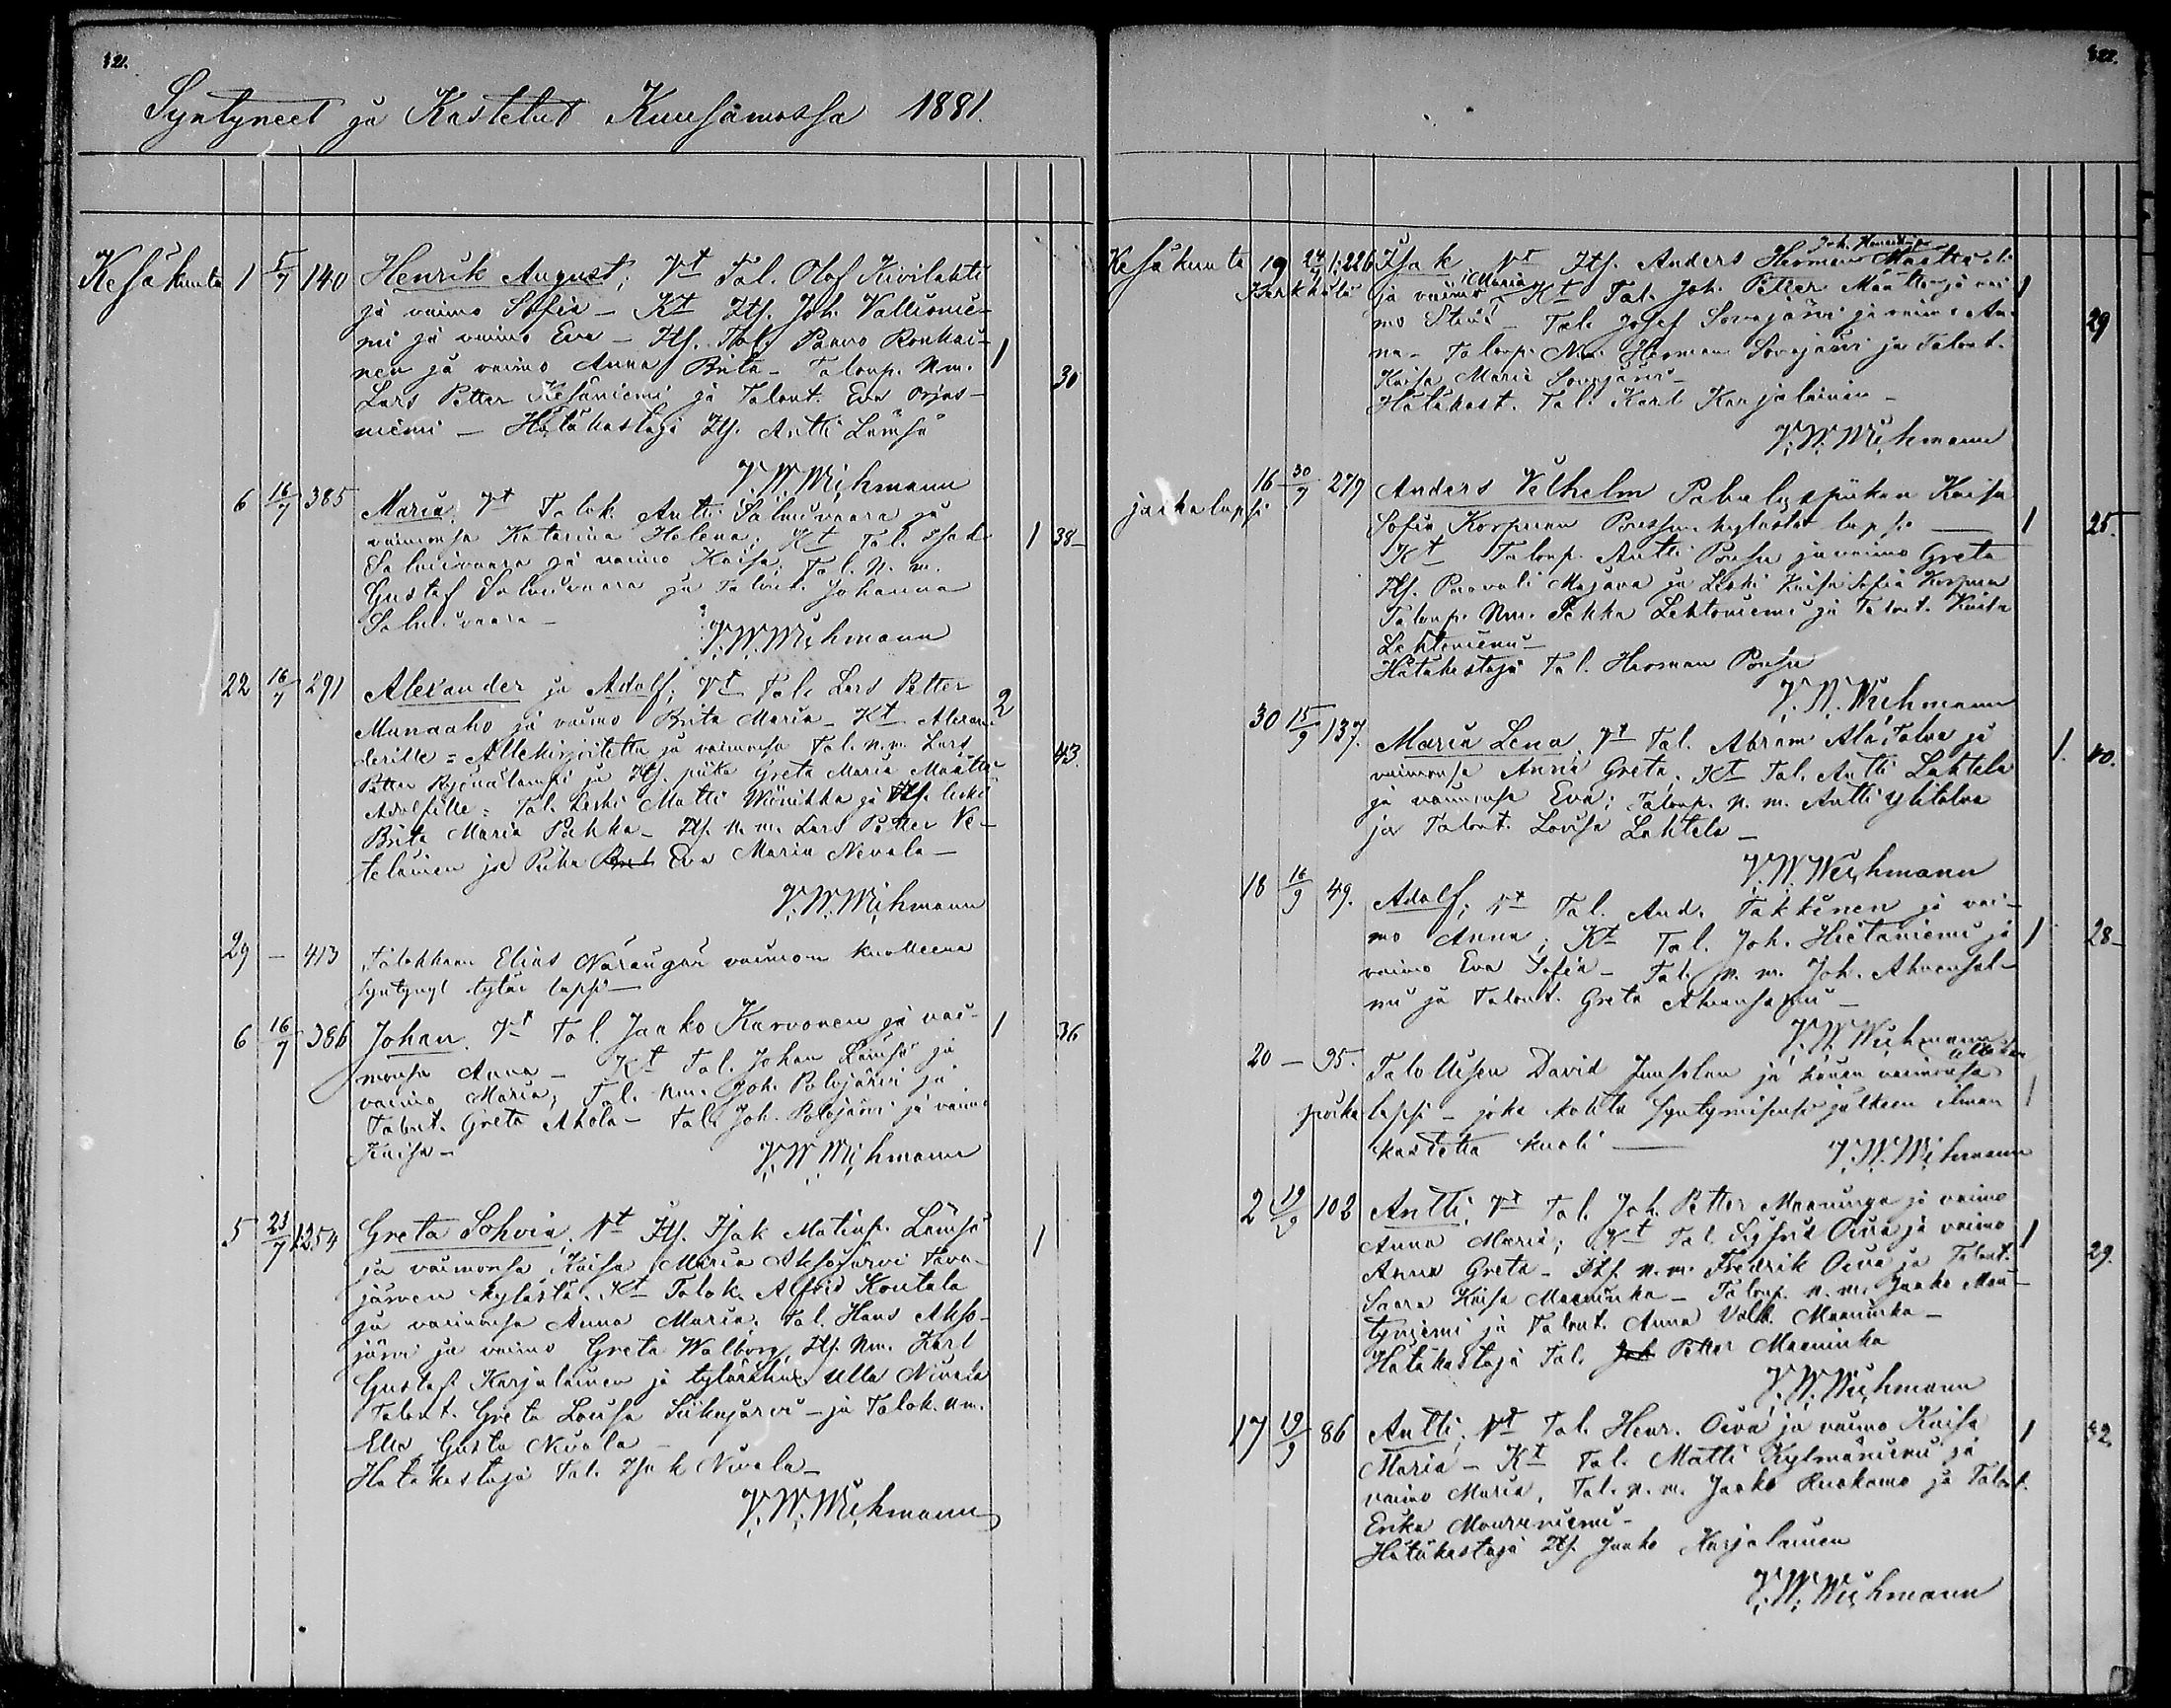 121.
Syntyneet ja Kastetut Kuusamossa 1881.
Kesäkuuta 1 5/7 140 Henrik August; Vt Tal. Olof Kivilahti
ja vaimo Sofia – Kt Its. Joh. Vallionie-
mi ja vaimo Eva – Its. Tal. Paavo Ronkai-
nen ja vaimo Anna Brita – Talonp. Nm. 1
Lars Petter Kesäniemi ja Talont. Eva Orjas- 30
niemi – Hätäkastaja Its. Antti Lämsä
V. W. Wichmann
6 16/7 385 Maria. Vt Talok. Antti Salmivaara ja
vaimonsa Katarina Helena. Kt Tal. Isak 1 38–
Salmivaara ja vaimo Kaisa. Tal. N. m.
Gustaf Salmivaara ja Talont. Johanna
Salmivaara –
V. W. Wichmann
22 16/7 291 Alexander ja Adolf; Vt Tal. Lars Petter
Murtoaho ja vaimo Brita Maria – Kt Alexan- 2
derille = Allekirjoitettu ja vaimonsa Tal. n.m. Lars 43.
Petter ja Its. piika Greta Maria Määttä
Adolfille = Tal. Leski Matti Winikka ja Its. leski
Brita Maria Pahka – Its. N. m. Lars Petter Ve-
teläinen ja Piika Eva Maria Nevala –
V. W. Wichmann
29 – 413 Talokkaan Elias Närängän vaimon kuolleena
syntynyt tytär lapsi –
6 16/7 386 Johan. Vt Tal. Jaako Karvonen ja vai- 1 36
monsa Anna – Kt Tal. Johan Lämsä ja
vaimo Maria, Tal. Nm. Joh. Polojärvi ja
Talont. Greta Ahola – Tal. Joh. Polojärvi ja vaimo
Kaisa –
V. W. Wichmann
5 23/7 1254 Greta Sohvia, Vt Its. Isak Matinp. Lämsä 1
ja vaimonsa Kaisa Maria Aksojärvi Tava-
järven kylästä. Kt Talok. Alfrid Kontala
ja vaimonsa Anna Maria. Tal. Hans Akso-
järvi ja vaimo Greta Walborg, Its. Nm. Karl
Gustaf Karjalainen ja Ulla Nivala
Talont. Greta Lovisa Siikajärvi – ja Talok. nm.
Elis Gusta Nivala –
Hätäkastaja Tal. Isak Nivala –
V. W. Wichmann
122.
Kesäkuuta 19 24/7 1:226 Isak Vt Its. Anders Herman Määttä
ja vaimo Maria – Kt Tal. Joh. Petter Määttä ja vai- 1
mo Stina – Tal. Josef Sovajärvi ja vaimo An- 29
na – Talonp. Nm. Herman Sovajärvi ja Talont.
Kaisa Maria Sovajärvi –
Hätäkast. Tal. Karl Karjalainen –
V. W. Wichmann
16 30/7 277 Anders Vilhelm Kaisa
Sofia Korpinen Poussun kylästä lapsi — 1 25.
Kt Talonp. Antti Poussu ja vaimo Greta
Its. Paavali Majava ja Leski Kaisa Sofia Korpinen
Talonp. Nm. Pekka Lehtoniemi ja Talont. Kaisa
Lehtoniemi –
Hätäkastaja Tal. Herman Poussu
V. W. Wichmann
30 15/9 137. Maria Lena, Vt Tal. Abram Ala,Talva ja
vaimonsa Anna Greta. Kt Tal. Antti Lahtela 1. 40.
ja vaimonsa Eva; Talonp. n. m. Antti Ylitalva
ja Talont. Lovisa Lahtela –
V. W. Wichmann
18 16/9 49. Adolf; Vt Tal. And. Takkinen ja vai-
mo Anna; Kt Tal. Joh. Hietaniemi ja 1 28–
vaimo Eva Sofia – Tal. n. m. Joh. Ahvensal-
mi ja Talont. Greta Ahvensalmi –
V. W. Wichmann
20 – 95. Talollisen David Juusolan ja hänen vaimonsa
poika lapsi – joka kohta syntymisensä jälkeen ilman 1
kastetta kuoli —
V. W. Wichmann
2 19/9 102 Antti, Vt Tal. Joh. Petter Maaninga ja vaimo
Anna Maria; Kt Tal. Sigfrid Oiva ja vaimo 1
Anna Greta – Its. n. m. Fredrik Oiva ja Talont. 29.
Saara Kaisa Maaninka – Talonp. n. m. Jaako Män-
tyniemi ja Talont. Anna Valb. Maaninka –
Hätäkastaja Tal. Joh Petter Maaninka
V. W. Wichmann
17 19/9 86 Antti; Vt Tal. Henr. Oiva ja vaimo Kaisa 1 32.
Maria – Kt Tal. Matti Kylmäniemi ja
vaimo Maria, Tal. n. m. Jaako Ruokamo ja Talont.
Erika Mouruniemi –
Hätäkastaja Its. Jaako Karjalainen
V. W. Wichmann